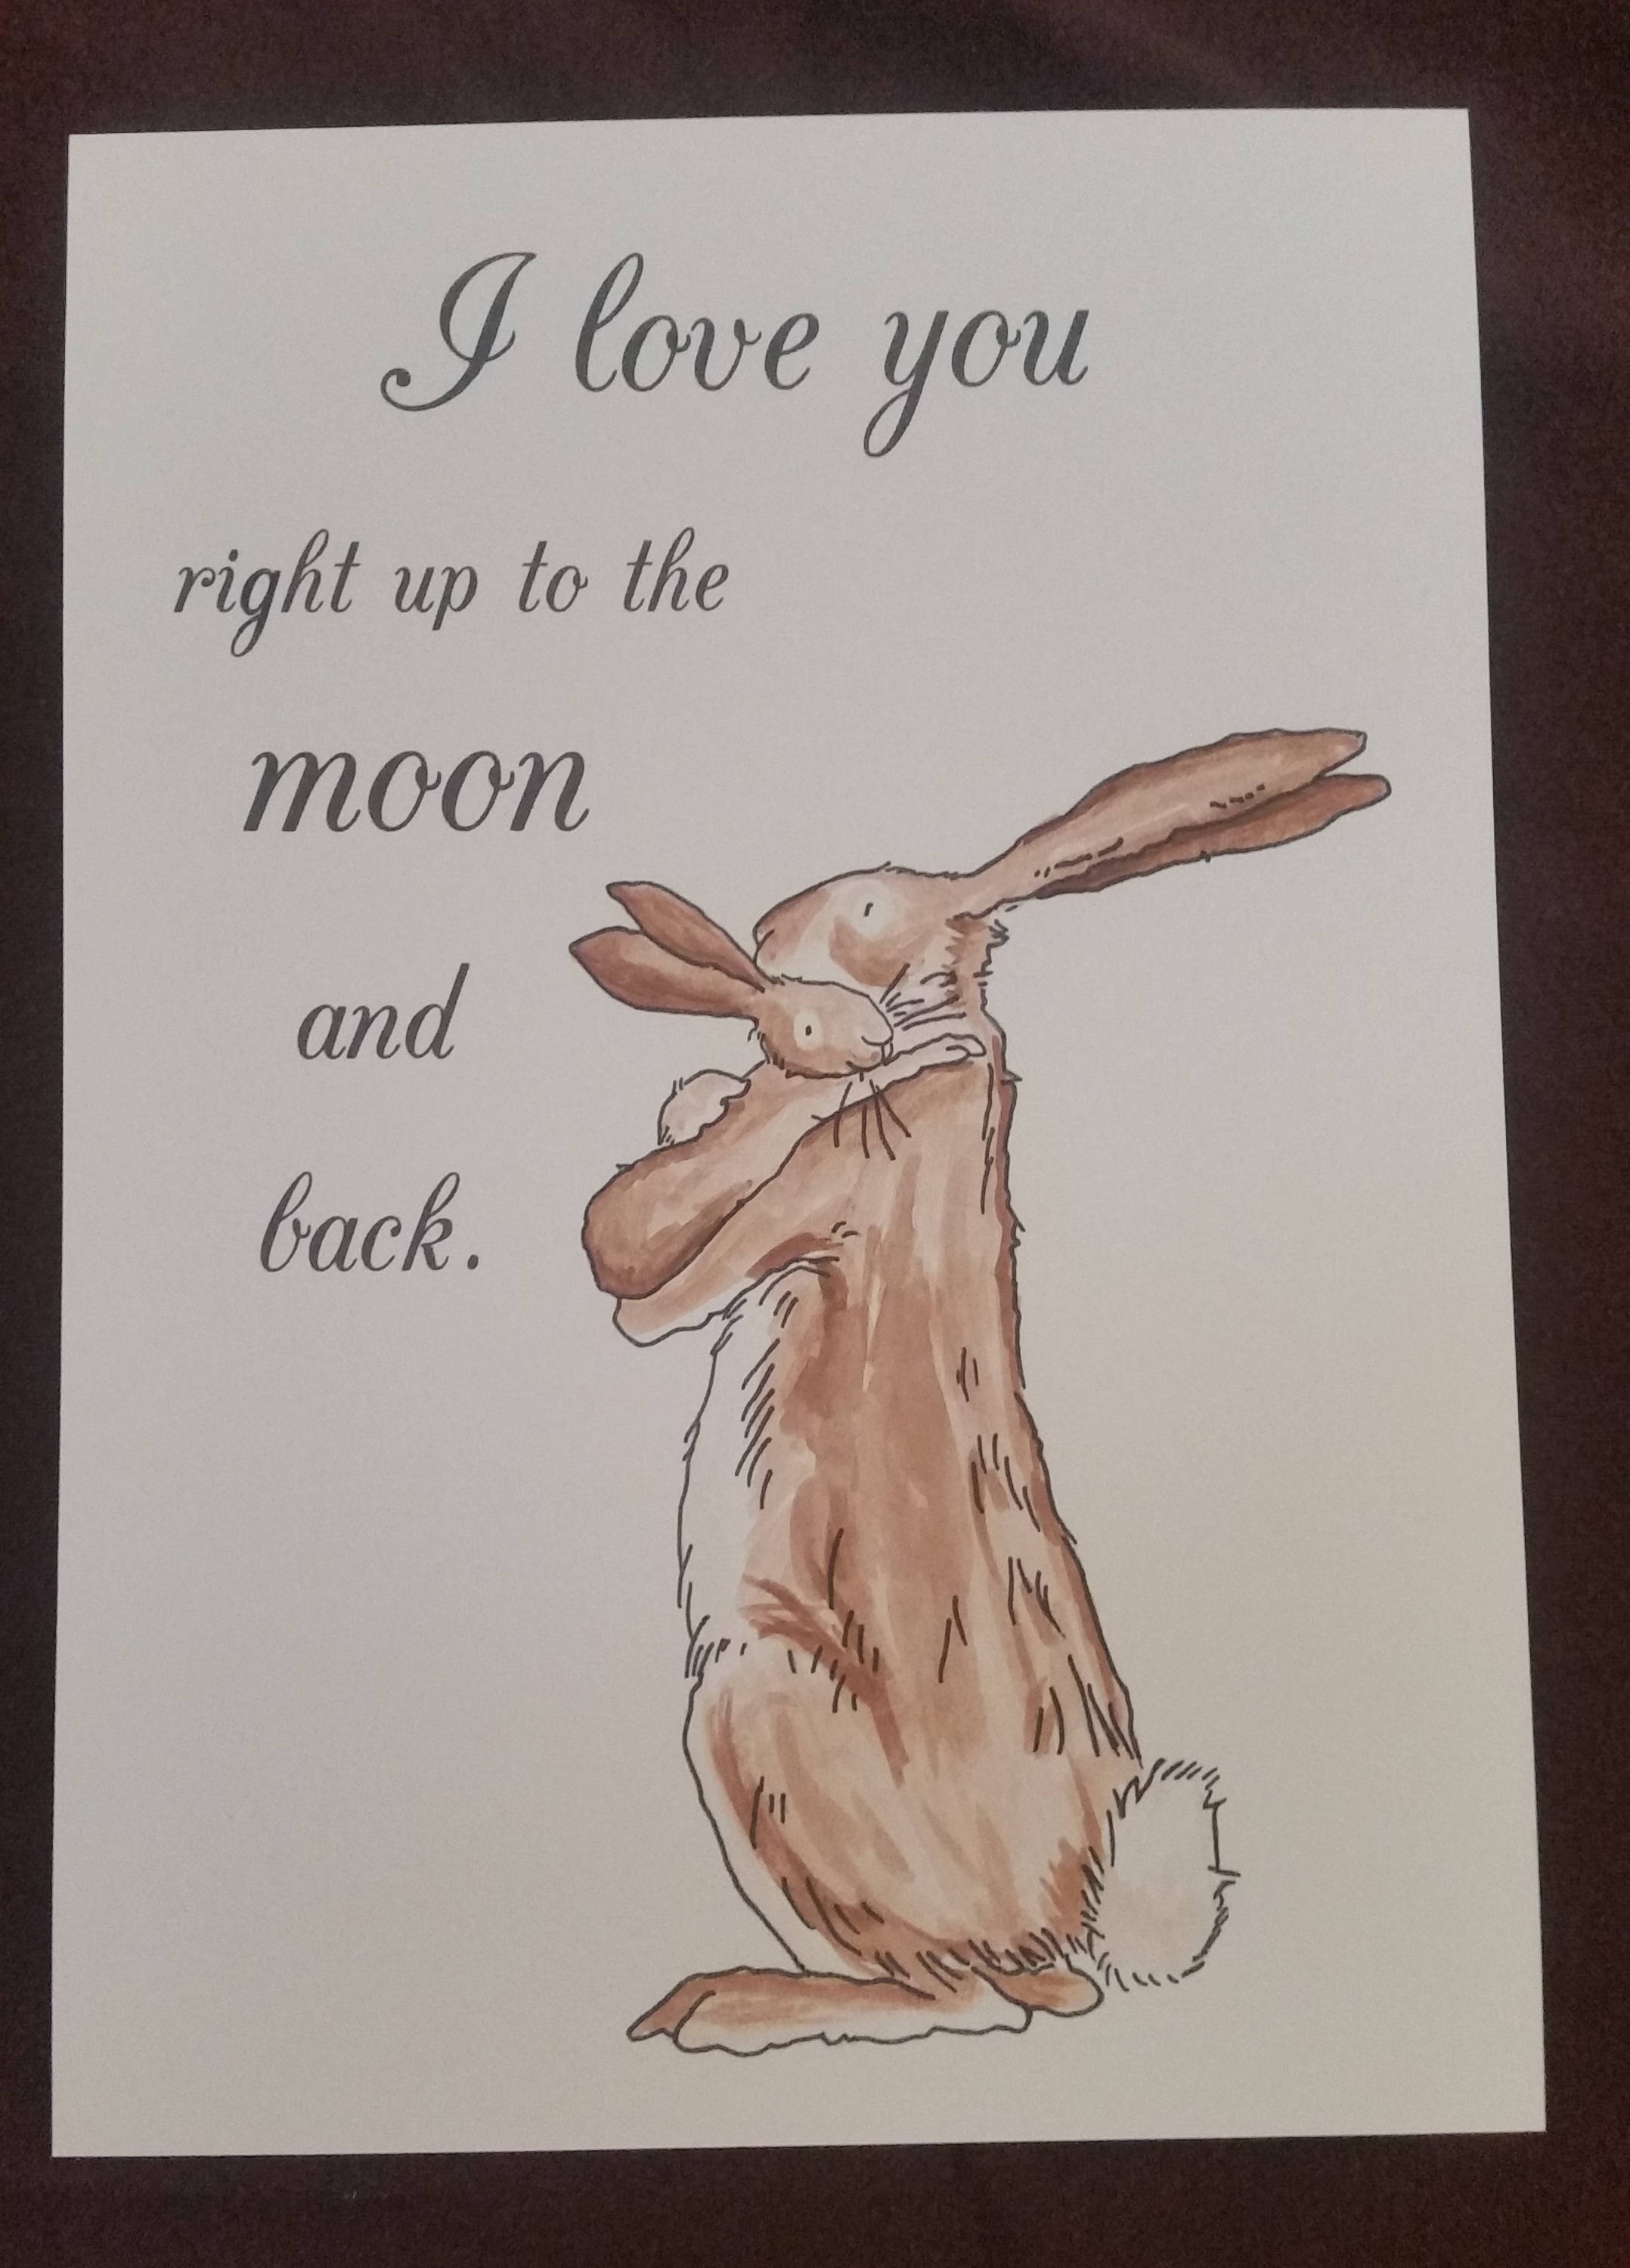 I love you
right up to the
moon
and
back.